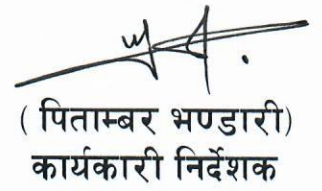 ( पिताम्बर भण्डारी)
कार्यकारी निर्देशक